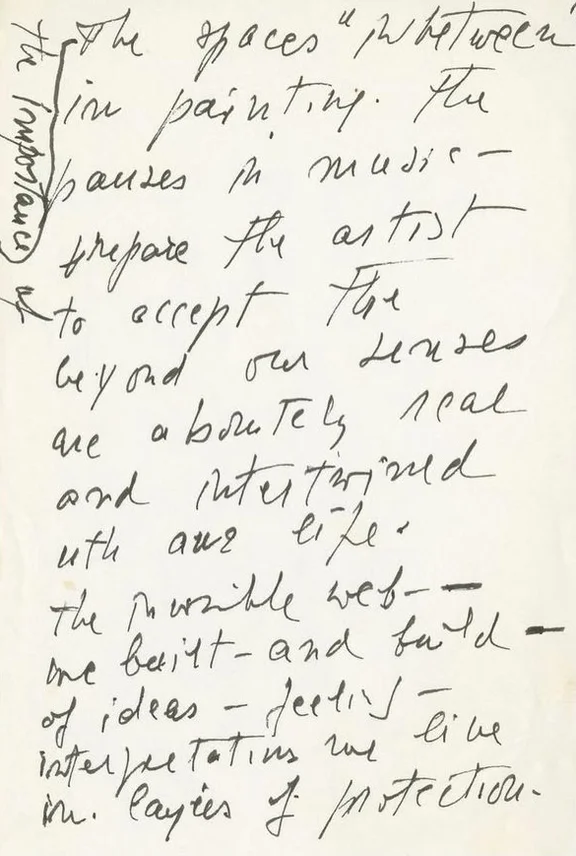 The Importance of
The spaces "inbetween"
in painting. The
pauses in music -
prepare the artist
to accept the
beyond our senses
are absolutely real
and intertwined
with our life.
the invisible web -
we built - and build -
of ideas - feeling -
interpretations we live
in. layers of protection.